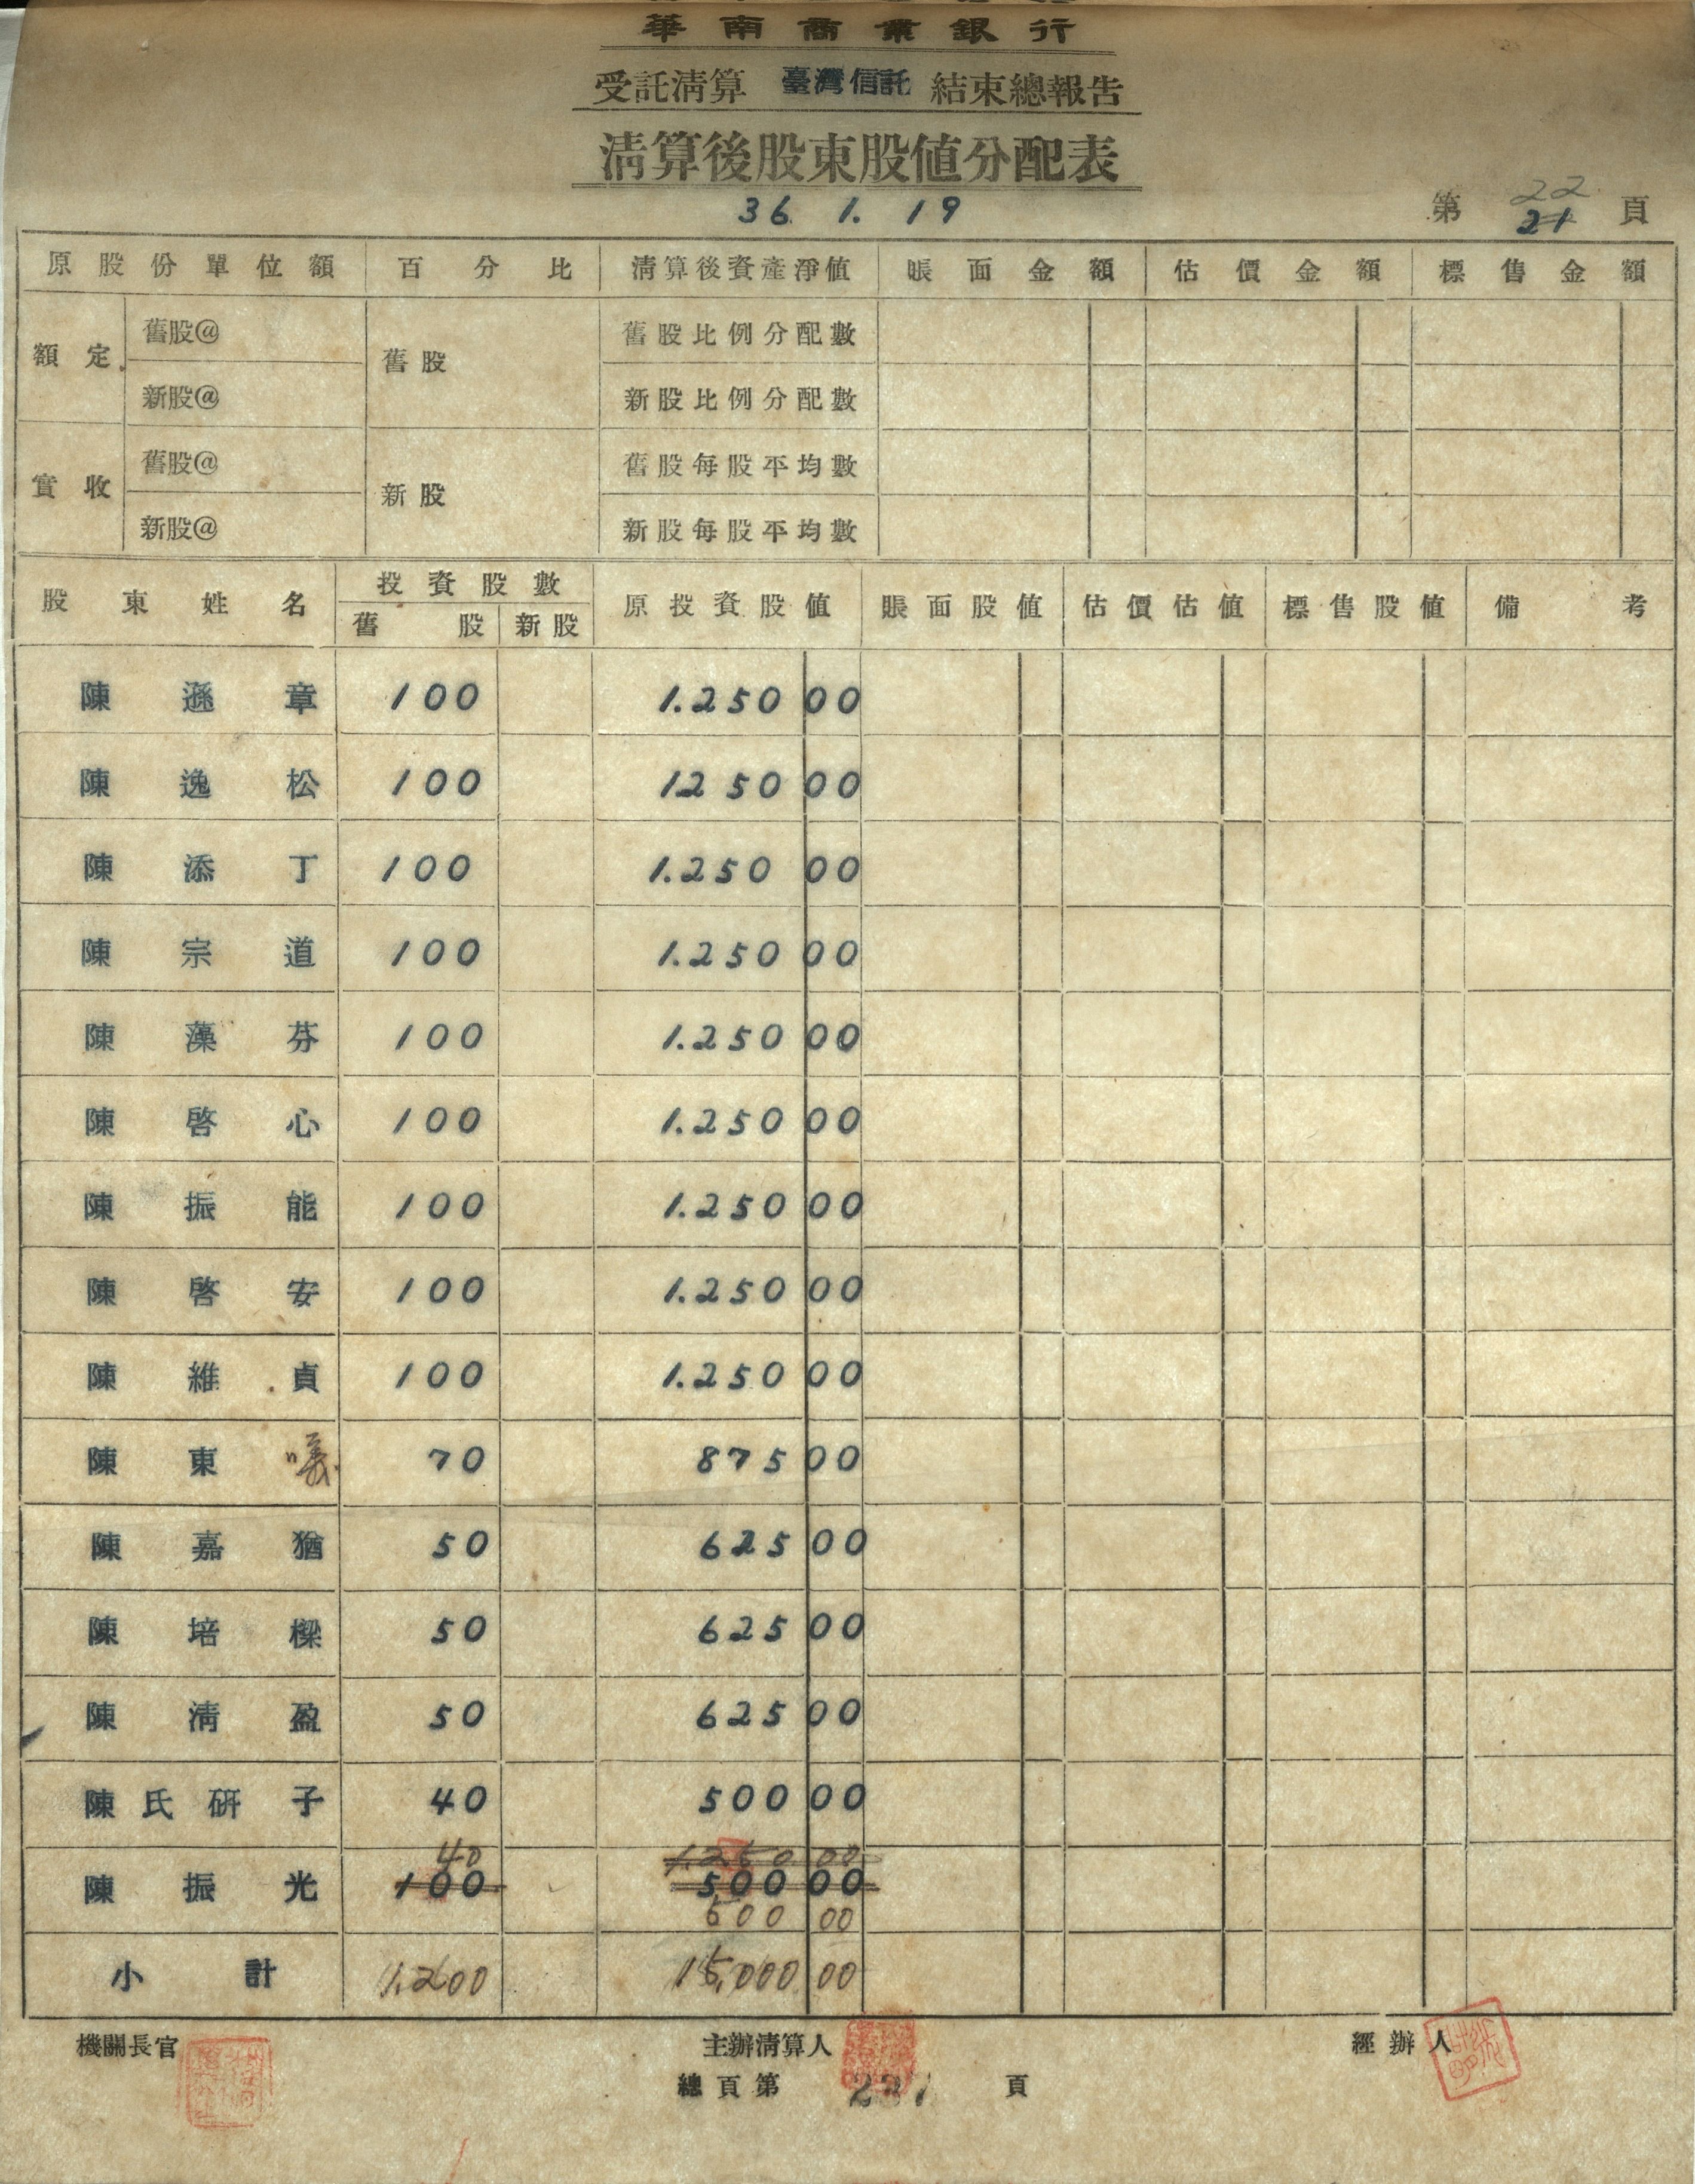 華南商業銀行
受託清算 臺灣信託 結束總報告
清算後股東股值分配表
36. 1. 19
第 22 21 頁
原股份單位額 百分比 清算後資產淨值 賬面金額 估價金額 標售金額
額定 舊股@ 舊股 舊股比例分配數
新股@ 新股比例分配數
實收 舊股@ 新股 舊股每股平均數
新股@ 新股每股平均數
股東姓名 投資股數 原投資股值 賬面股值 估價估值 標售股值 備考
舊股 新股
陳遜章 100 1.250 00
陳逸松 100 1250 00
陳添丁 100 1.250 00
陳宗道 100 1.250 00
陳藻芬 100 1.250 00
陳啓心 100 1.250 00
陳振能 100 1.250 00
陳啓安 100 1.250 00
陳維貞 100 1.250 00
陳東㬢 70 875 00
陳嘉猶 50 625 00
陳培樑 50 625 00
陳清盈 50 625 00
陳氏研子 40 500 00
40 1.250 00
陳振光 100 500 00
500 00
小計 1,200 15,000 00
機關長官 主辦清算人 經辦人
總頁第 221 頁